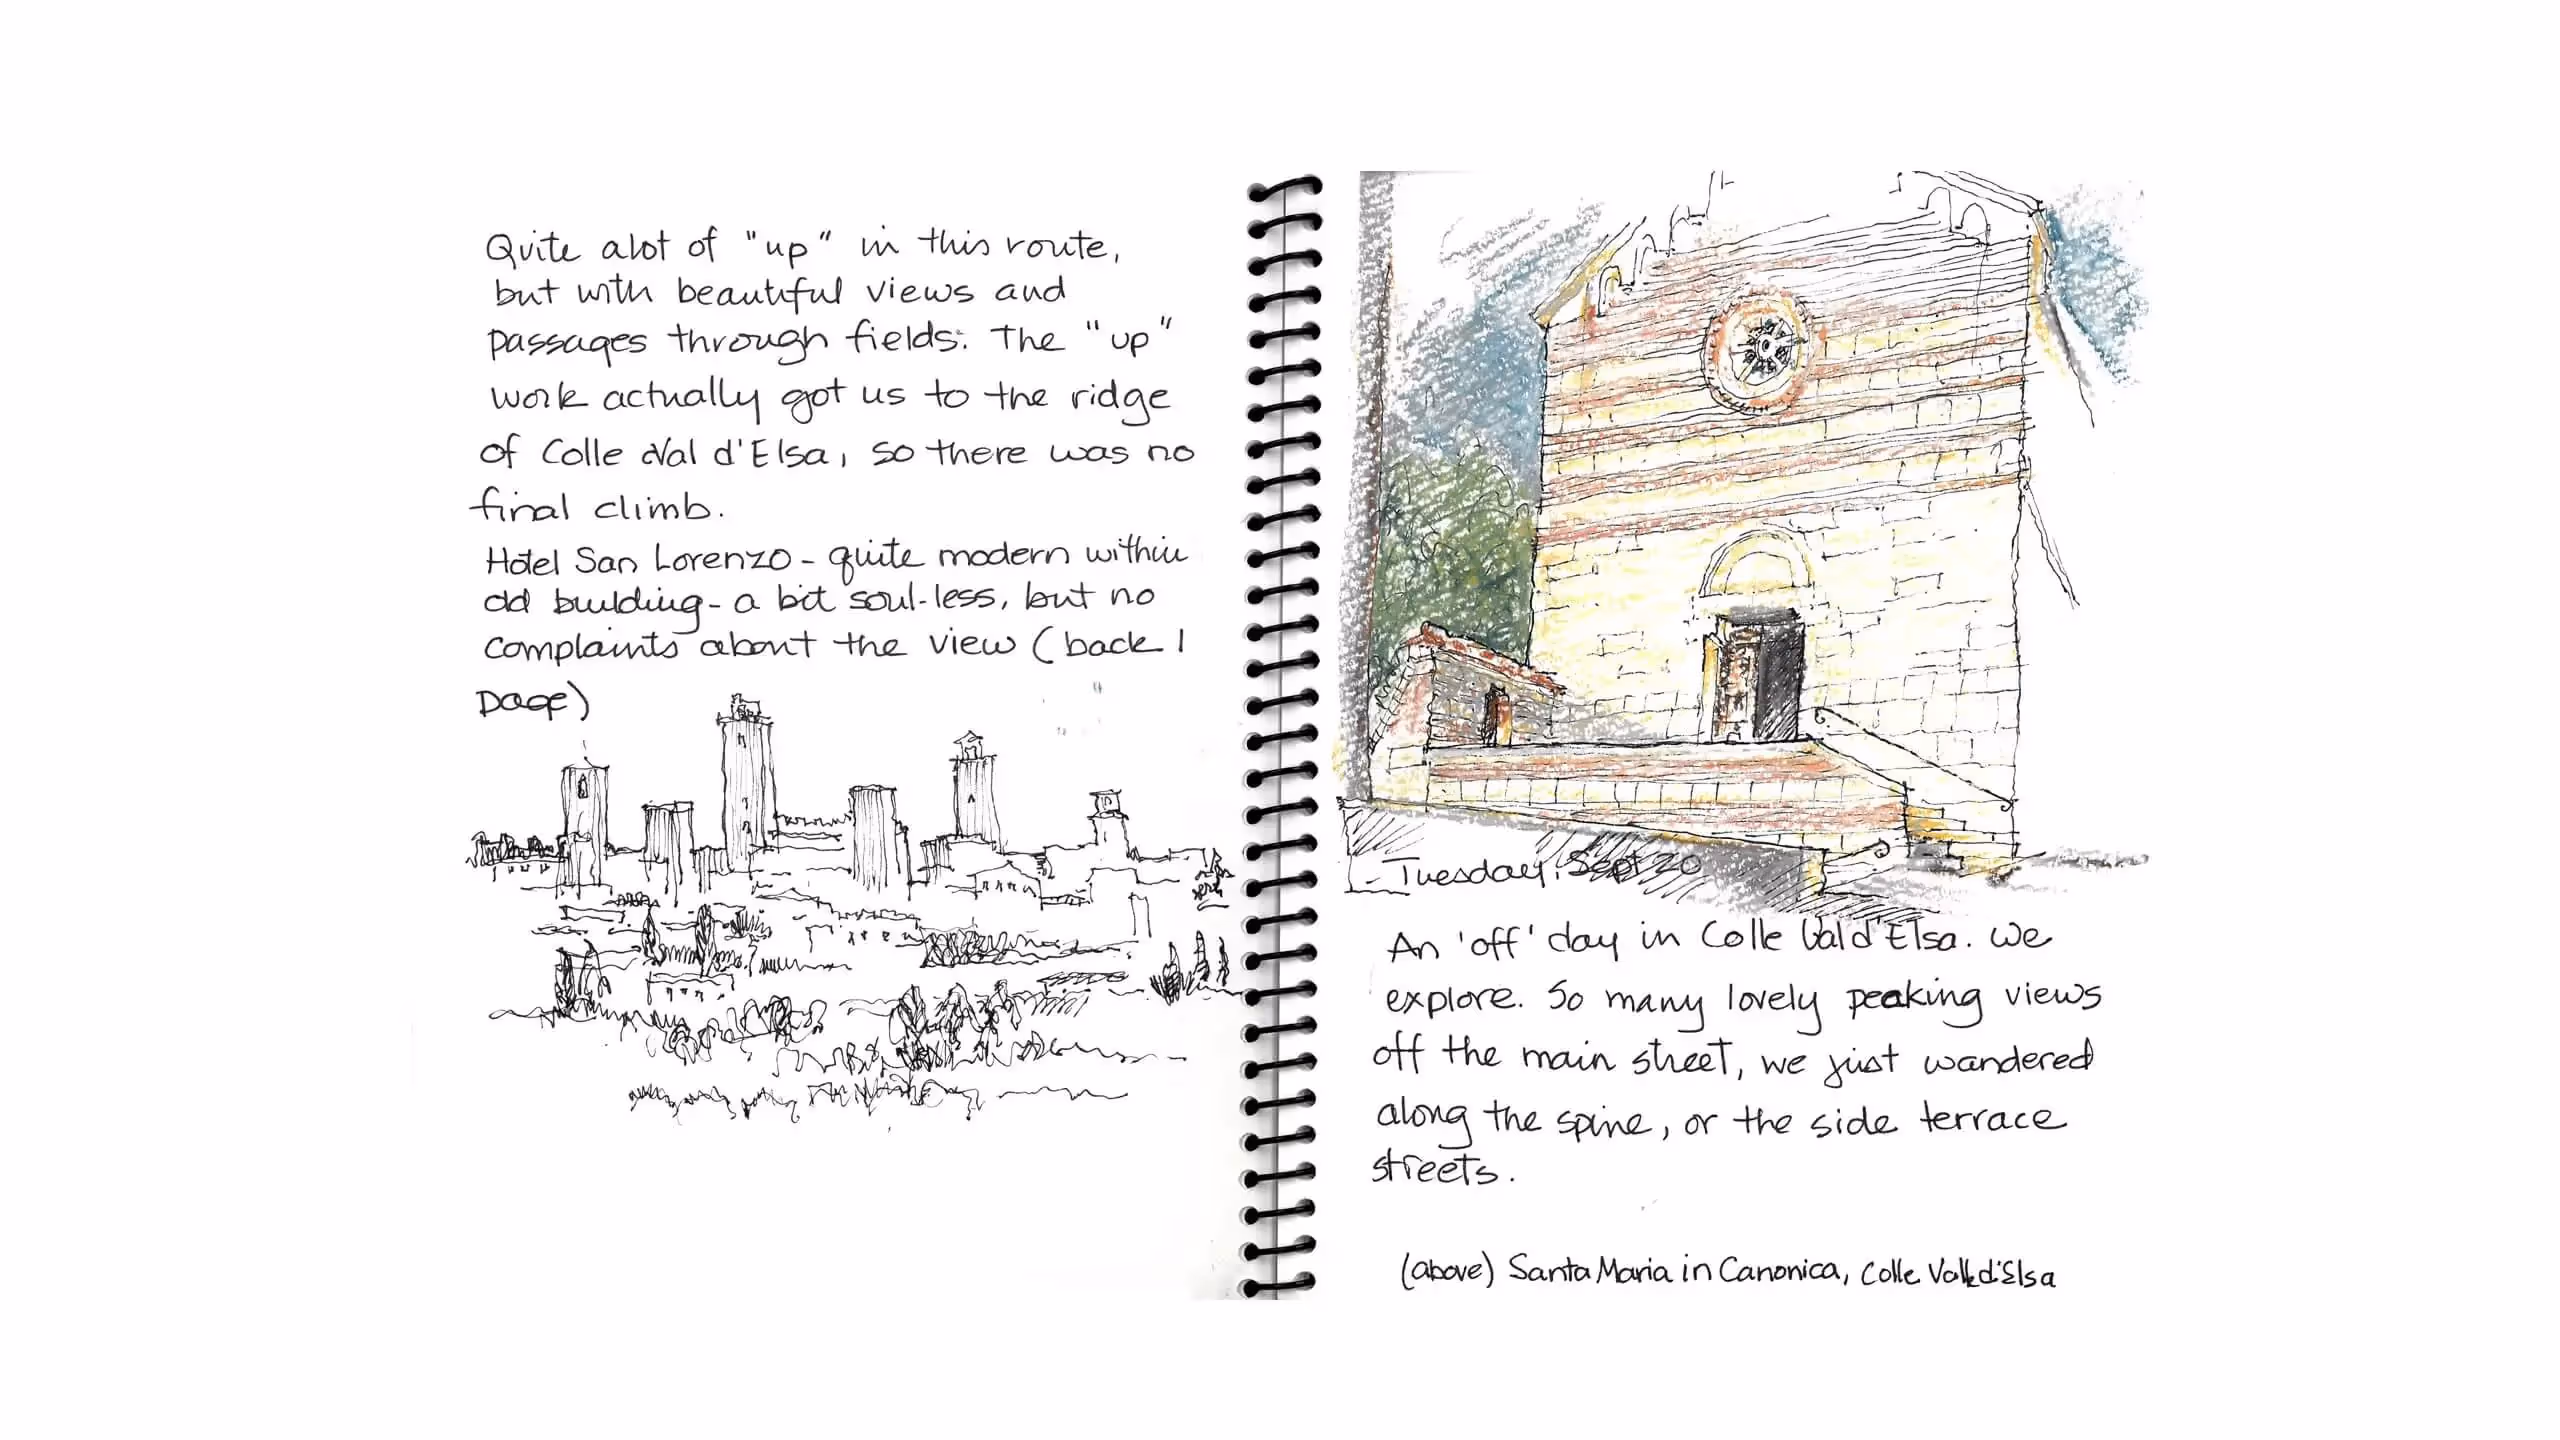 Quite alot of "up" in this route,
but with beautiful views and
passages through fields. The "up"
work actually got us to the ridge
of Colle Val d'Elsa, so there was no
final climb.
Hotel San Lorenzo - quite modern within
old building - a bit soul-less, but no
complaints about the view (back 1
page)
Tuesday, Sept 20
An 'off' day in Colle Val d'Elsa. We
explore. So many lovely peaking views
off the main street, we just wandered
along the spine, or the side terrace
streets.
(above) Santa Maria in Canonica, Colle Vall d'Elsa